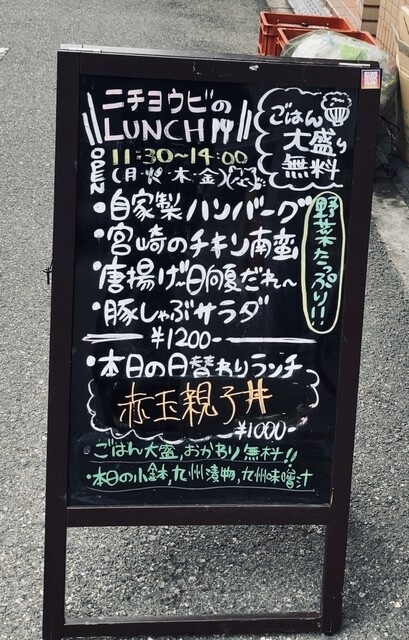 ニチヨウビの
LUNCH
ごはん
大盛り
無料
OPEN
11:30~14:00
(月・火・木・金)
・自家製ハンバーグ
・宮崎のチキン南蛮
・唐揚げ~日向夏だれ~
・豚しゃぶサラダ
野菜たっぷり!!
¥1200-
・本日の日替わりランチ
赤玉親子丼
¥1000-
ごはん大盛,おかわり無料!!
・本日の小鉢,九州漬物,九州味噌汁